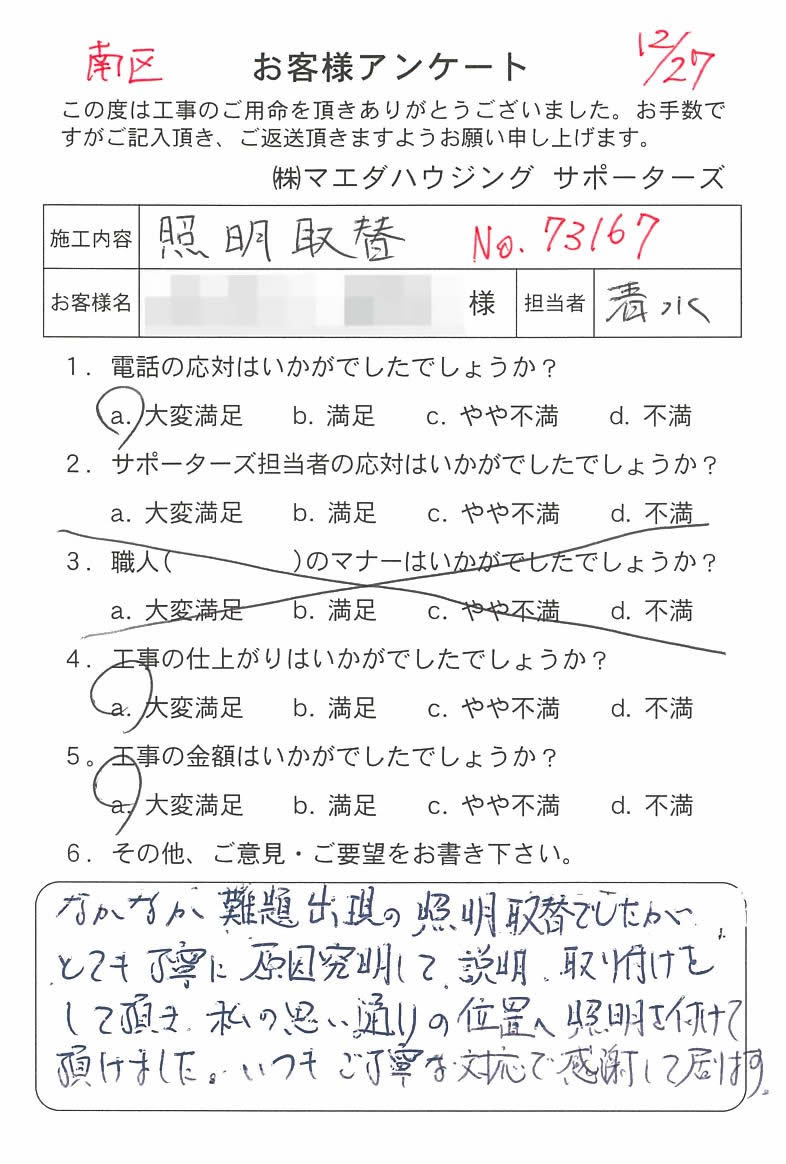 南区 お客様アンケート 12/27
この度は工事のご用命を頂きありがとうございました。お手数で
すがご記入頂き、ご返送頂きますようお願い申し上げます。
㈱マエダハウジング サポーターズ
施工内容 照明取替 No.73167
お客様名 様 担当者 清水
1. 電話の応対はいかがでしたでしょうか?
a. 大変満足 b. 満足 c. やや不満 d. 不満
2. サポーターズ担当者の応対はいかがでしたでしょうか?
a. 大変満足 b. 満足 c. やや不満 d. 不満
3. 職人( )のマナーはいかがでしたでしょうか?
a. 大変満足 b. 満足 c. やや不満 d. 不満
4. 工事の仕上がりはいかがでしたでしょうか?
a. 大変満足 b. 満足 c. やや不満 d. 不満
5。工事の金額はいかがでしたでしょうか?
a. 大変満足 b. 満足 c. やや不満 d. 不満
6. その他、ご意見・ご要望をお書き下さい。
なかなか難題出現の照明取替でしたが、
とても丁寧に原因究明して、説明、取り付けを
して頂き、私の思い通りの位置へ照明を付けて
頂けました。いつもご丁寧な対応で感謝して居ます。